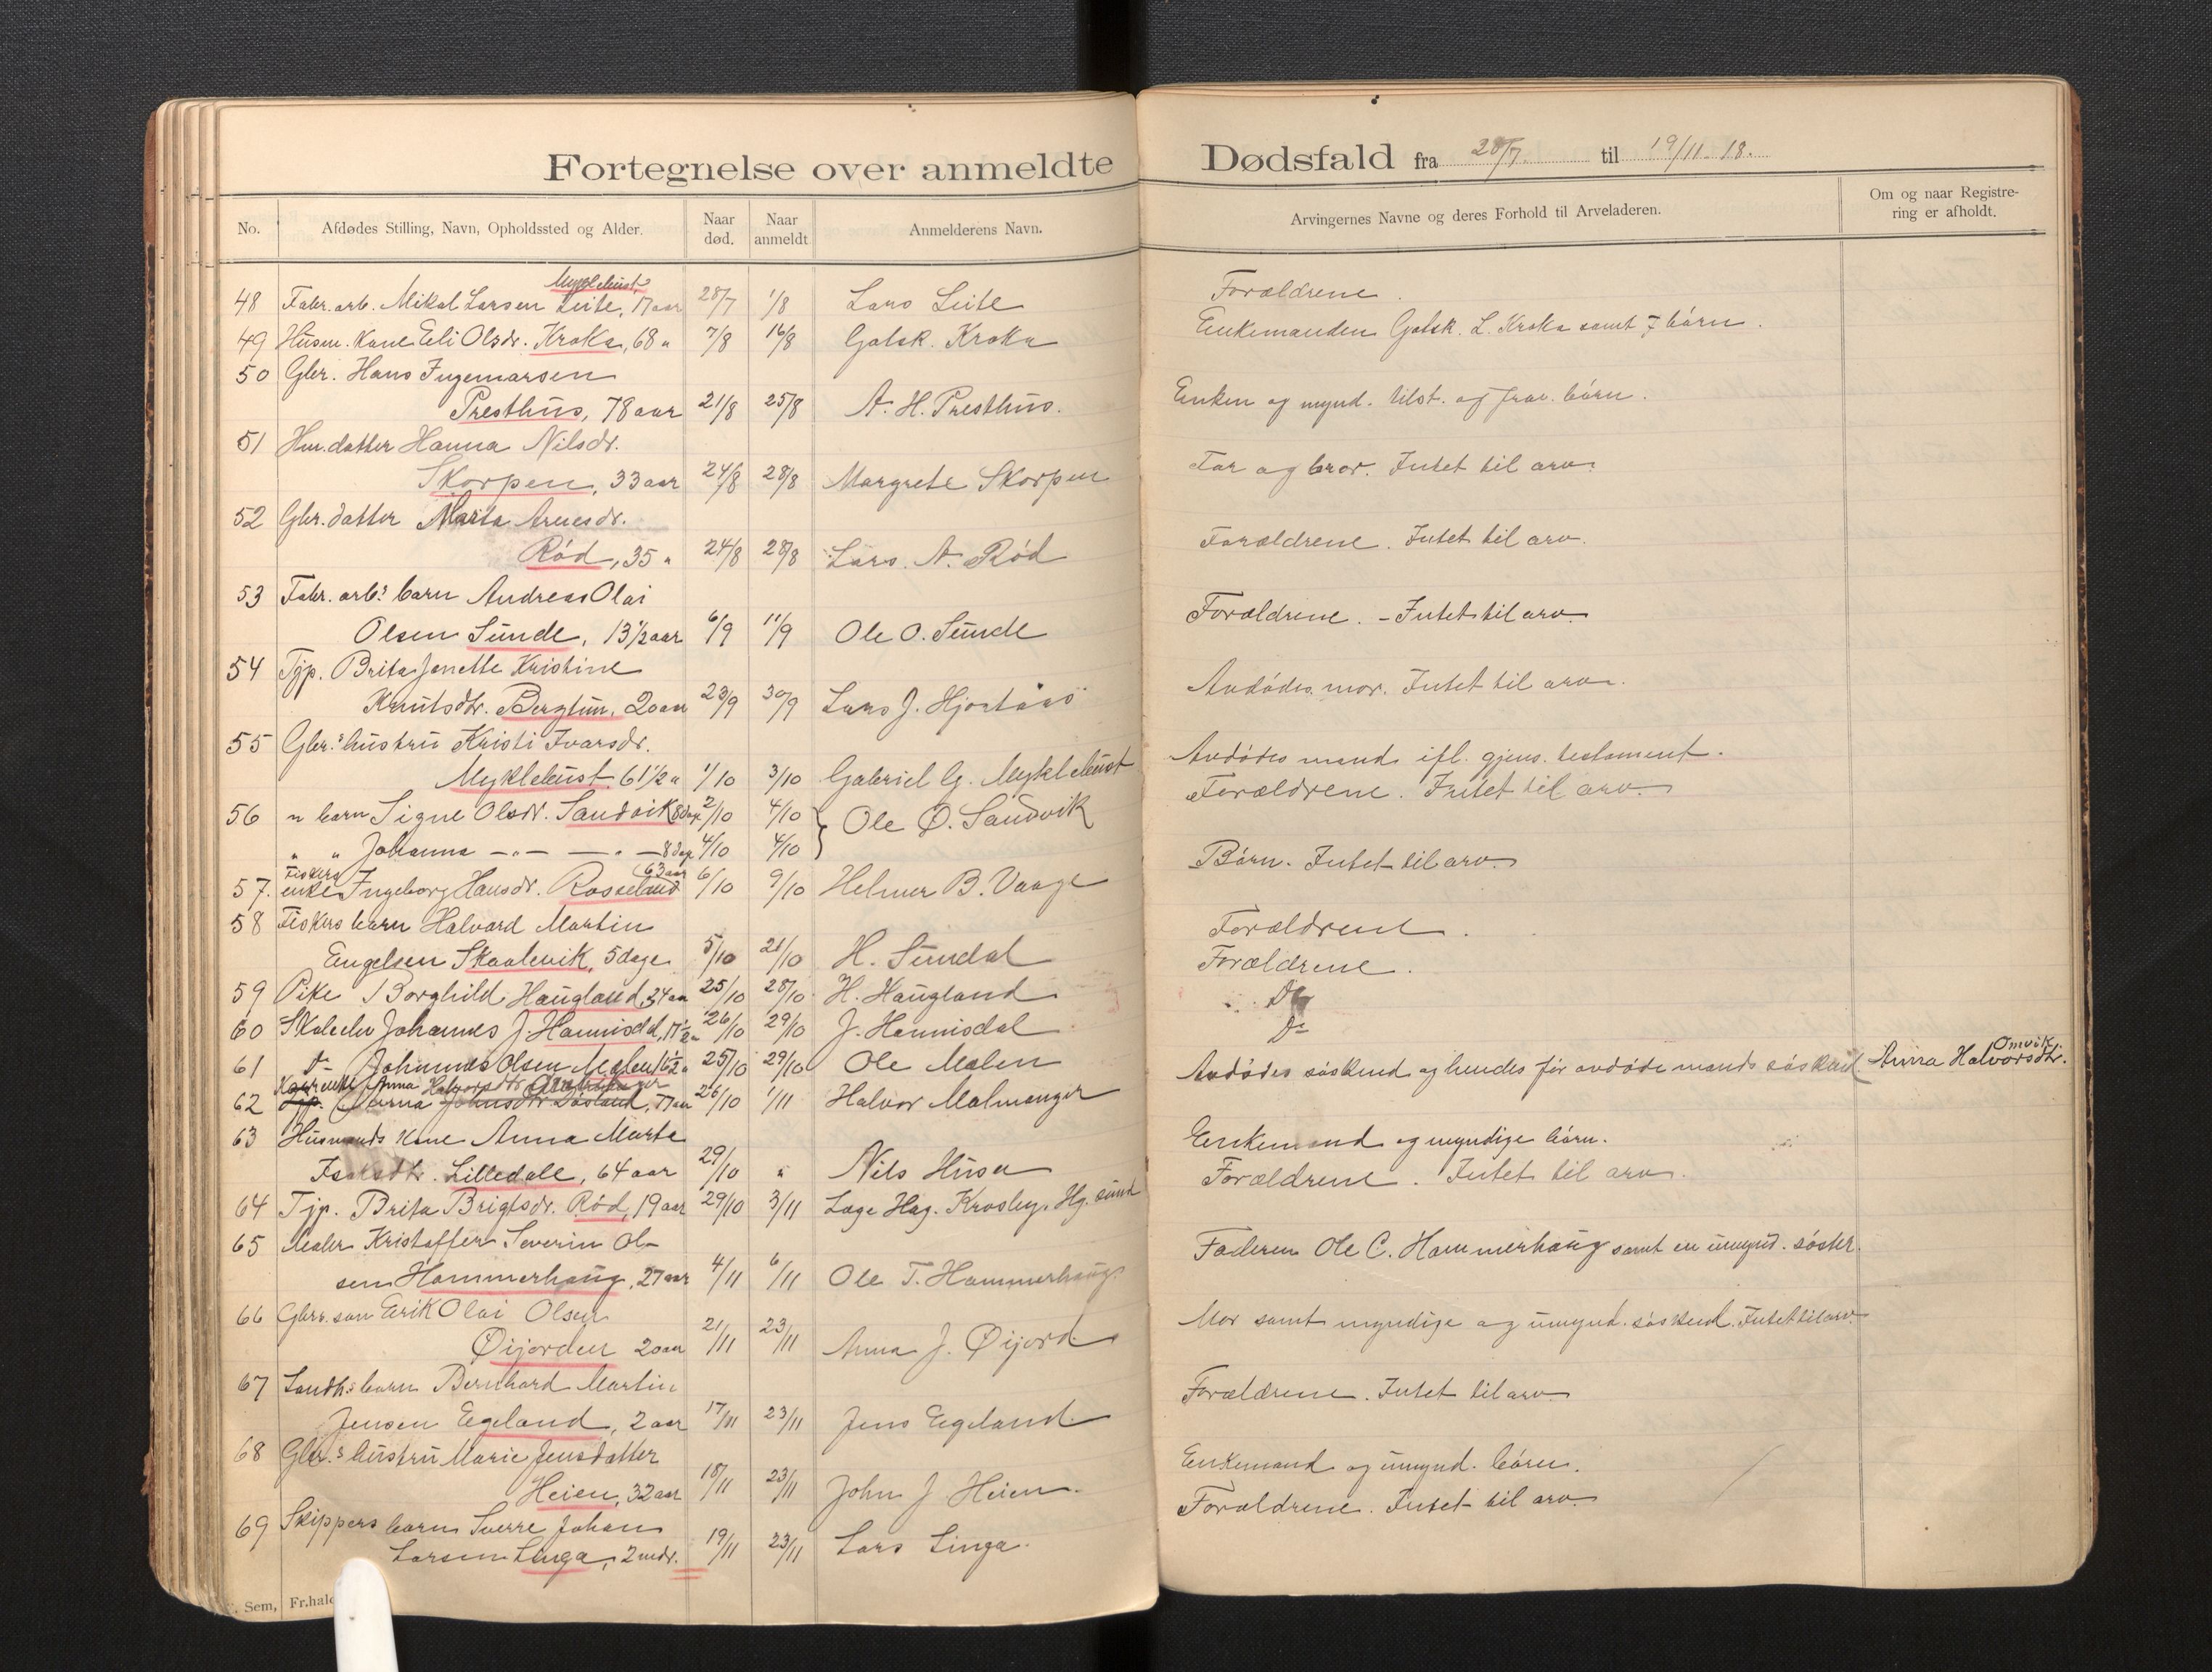 Fortegnelse over anmeldte Dødsfald fra 28/7 til 19/11. 18.
No. Afdødes Stilling, Navn, Opholdssted og Alder. Naar død. Naar anmeldt Anmelderens Navn. Arvingernes Navne og deres Forhold til Arveladeren. Om og naar Registrering er afholdt.
Myklebust
48 Fabr. arb. Mikal Larsen Leite, 17 aar 28/7 1/8 Lars Leite Forældrene.
49 Husm. Kone Eli Olsdr. Kroka, 68 " 7/8 16/8 Gotsk. Kroka Enkemanden Gotsk. L. Kroka samt 7 børn.
50 Gbr. Hans Ingemarsen
Presthus, 78 aar 21/8 25/8 A. H. Presthus. Enken og mynd. tilst. og frav. børn.
51 Hm. datter Hanna Nilsdr.
Skorpen, 33 aar 24/8 28/8 Margrete Skorpen Far og bror. Intet til arv.
52 Gbr. datter Marta Arnesdr.
Rød, 35 " 24/8 28/8 Lars. A. Rød Forældrene. Intet til arv.
53 Fabr. arb.s barn Andreas Olai
Olsen Sunde, 13 1/2 aar 6/9 11/9 Ole O. Sunde Forældrene. - Intet til arv.
54 Tjp. Brita Jonette Kristine
Knutsdtr. Bergtun, 20 aar 23/9 30/9 Lars J. Hjortaas Avdødes mor. Intet til arv.
55 Gbr.s hustru Kristi Ivarsdr.
Myklebust 61 1/2 " 1/10 3/10 Gabriel G. Myklebust Avdødes mand ifl. gjens. testament.
56 " barn Signe Olsdr. Sandvik 8 dage 2/10 4/10 } Ole Ø. Sandvik Forældrene. Intet til arv.
" " Johanna - " - - " - 8 dag. 4/10 4/10
Fiskers 63 aar
57. enke Ingeborg Hansdr. Rosseland 6/10 9/10 Helmer B. Vaage Børn. Intet til arv.
58 Fiskers barn Halvard Martin
Engelsen Skaalevik, 5 dage 5/10 21/10 H. Sundal Forældrene.
59 Pike Borghild Haugland, 24 aar 25/10 28/10 H. Haugland Forældrene.
60 Skoleelev Johannes J. Hannisdal, 17 1/2 " 26/10 29/10 J. Hannisdal Do
61 do Johannes Olsen Malen 16 1/2 " 25/10 29/10 Ole Malen Do
Kaarenke Anna Halvorsdtr
62 Tjp. Anna Johnsdtr. 77 aar 26/10 1/11 Halvor Malmanger Avdødes søskend og hendes før avdøde mands søskend Anna Halvorsdtr. Omvik
63 Husmands Kone Anna Marta
Isaksdtr. Lilledale, 64 aar 29/10 " Nils Husa Enkemand og myndige børn.
64 Tjp. Brita Brigtsdr. Rød, 19 aar 29/10 3/11 Læge Hag. Krosby, Hg. sund Forældrene. Intet til arv.
65 Maler Kristoffer Severin Ol-
sen Hammerhaug, 27 aar 4/11 6/11 Ole T. Hammerhaug Faderen Ole C. Hammerhaug samt en umynd. søster.
66 Gbrs. søn Erik Olai Olsen
Øijorden 20 aar 21/11 23/11 Anna J. Øijord Mor samt myndige og umynd. søskend. Intet til arv.
67 Landh.s barn Bernhard Martin
Jensen Egeland, 2 aar 17/11 23/11 Jens Egeland. Forældrene. Intet til arv
68 Gbr.s hustru Marie Jensdatter
Heien, 32 aar 18/11 23/11 John J Heien. Enkemand og umynd. børn.
69 Skippers barn Sverre Johan
Larsen Linga, 2 mdr. 19/11 23/11 Lars Linga. Forældrene. Intet til arv.
Sem, Fr.hald